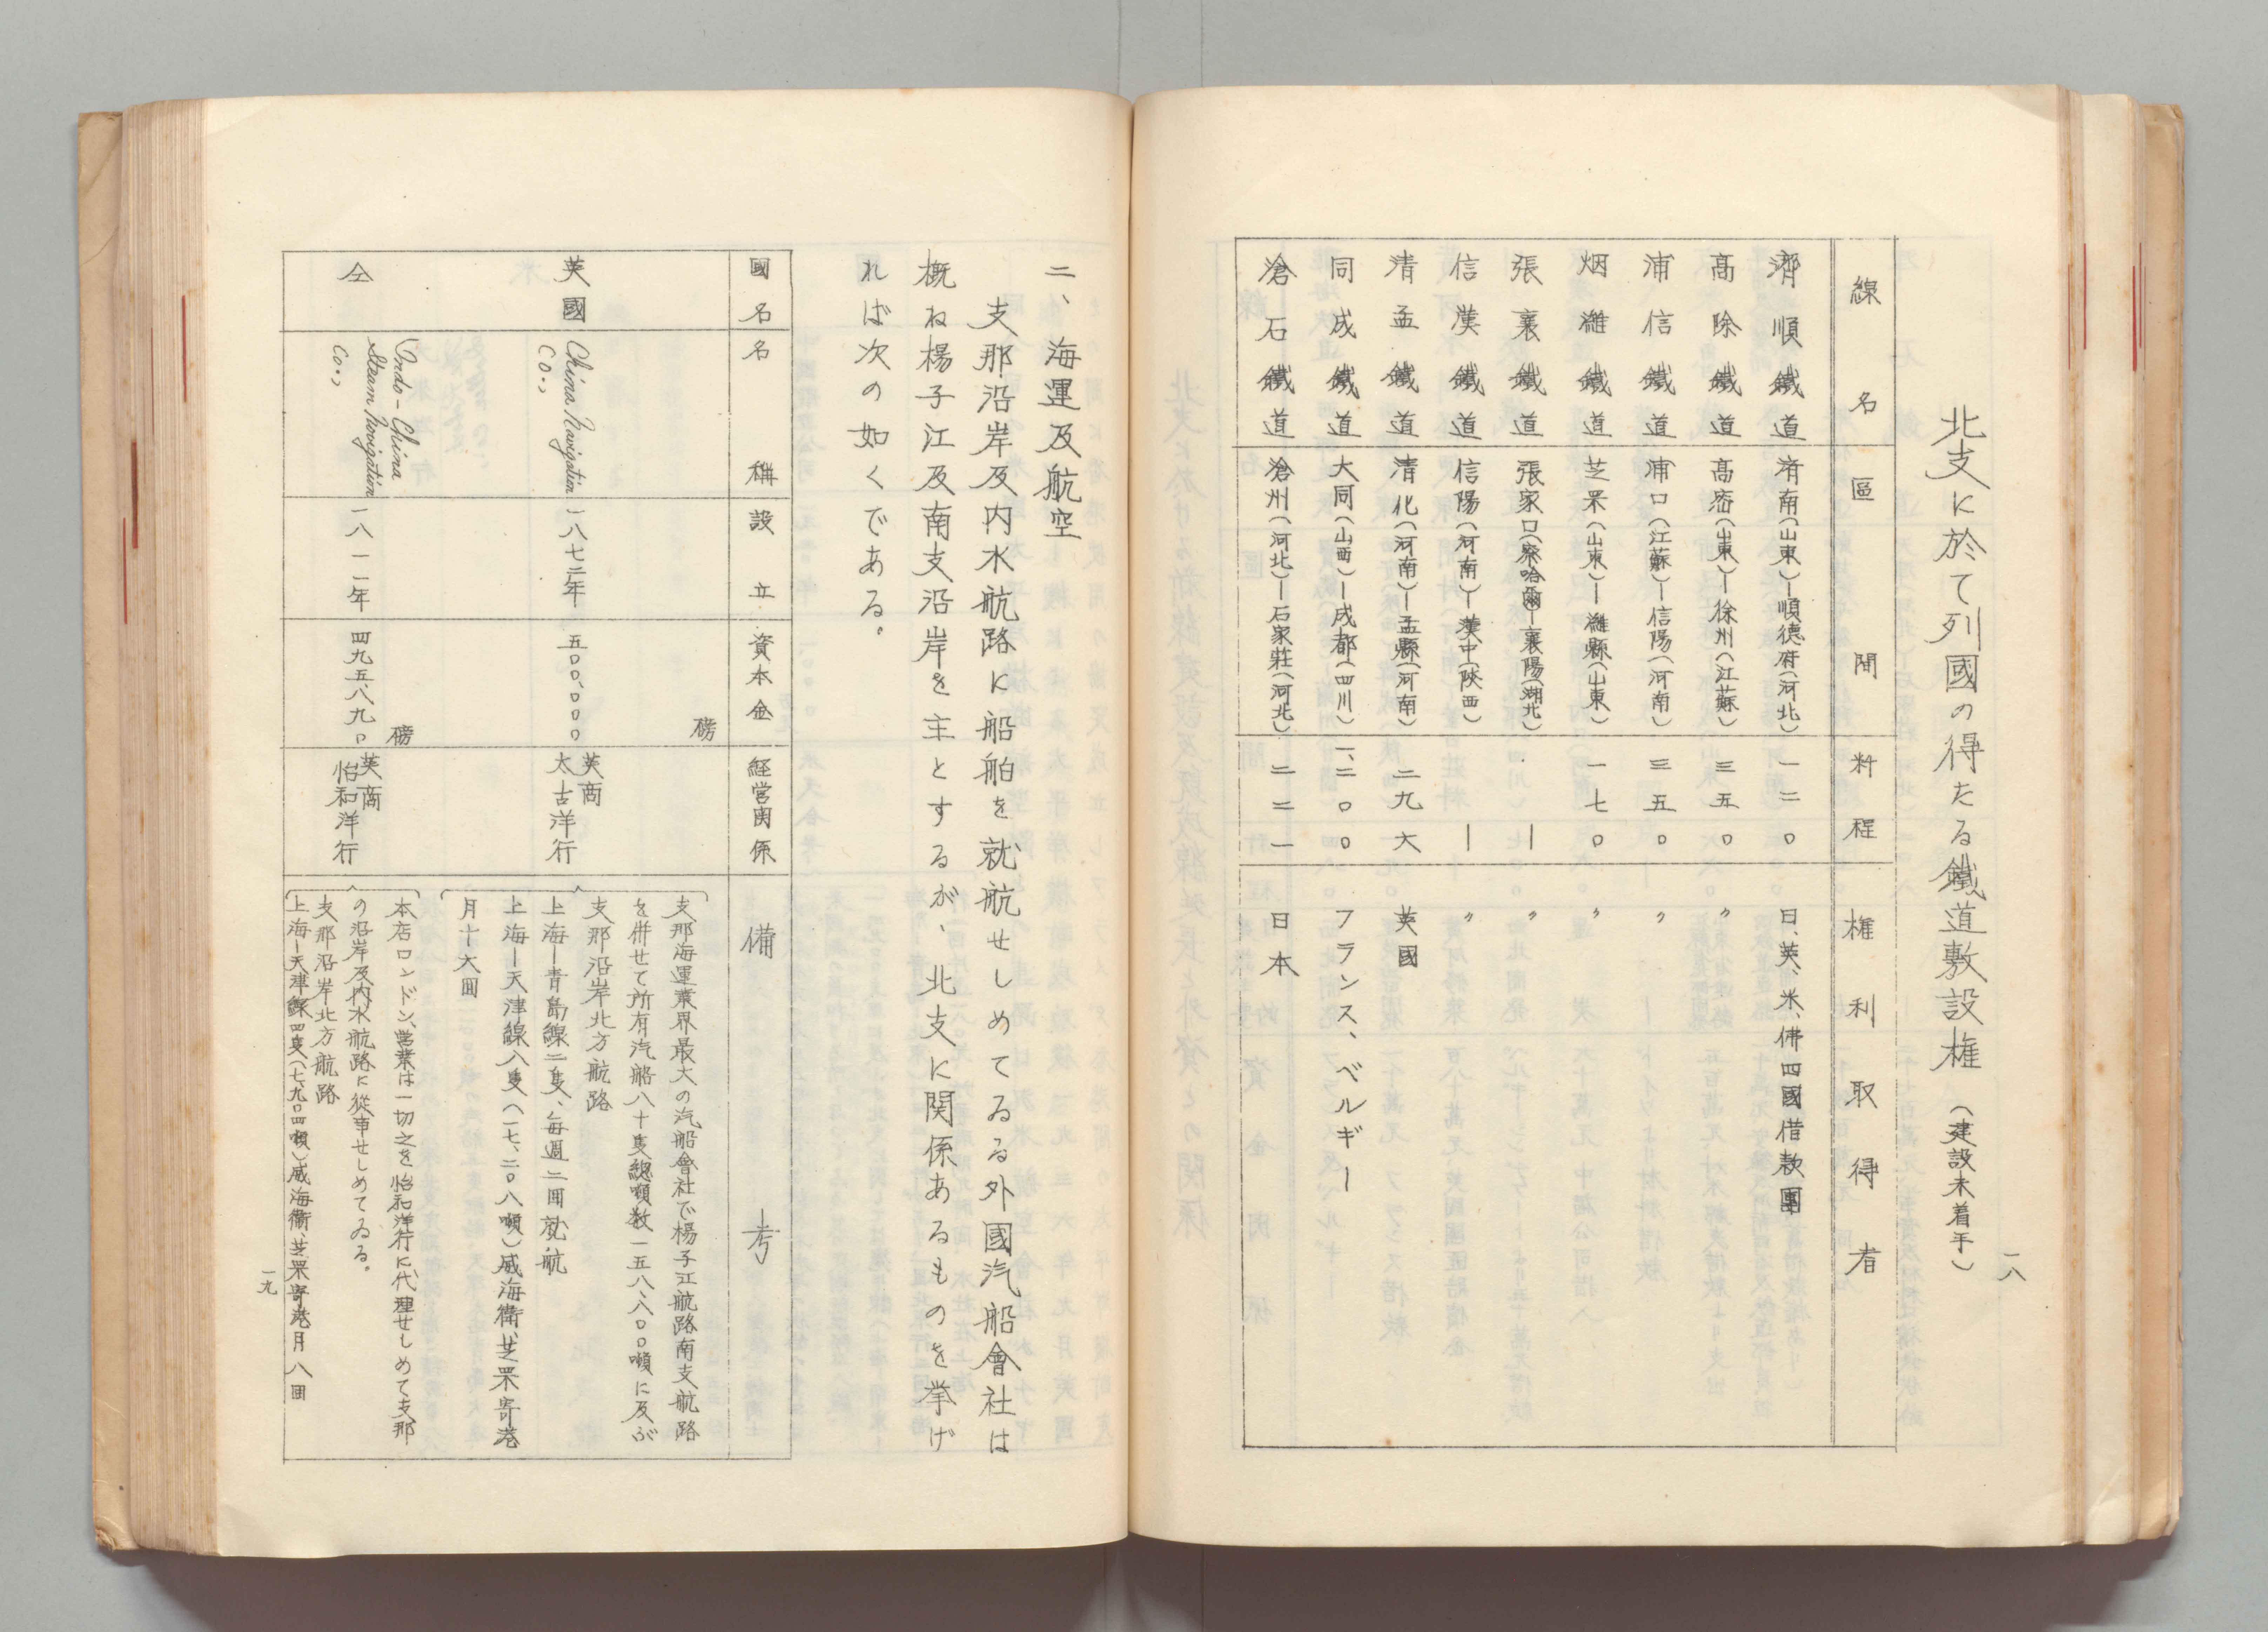 一八
北支に於て列國の得たる鐵道敷設権 (建設未着手)
線名 區間 粁程 権利取得者
濟順鐵道 済南(山東)―順德府(河北) 一二〇 日、英、米、佛四國借款團
高除鐵道 高密(山東)―徐州(江蘇) 三五〇 〃
浦信鐵道 浦口(江蘇)―信陽(河南) 三五〇 〃
烟濰鐵道 芝罘(山東)―濰縣(山東) 一七〇 〃
張襄鐵道 張家口(察哈爾)―襄陽(湖北) ― 〃
信漢鐵道 信陽(河南)―漢中(陜西) ― 〃
清孟鐵道 清化(河南)―孟縣(河南) 二九六 英國
同成鐵道 大同(山西)―成都(四川) 一、二〇〇 フランス、ベルギー
滄石鐵道 滄州(河北)―石家莊(河北) 二二一 日本
二、海運及航空
支那沿岸及内水航路に船舶を就航せしめてゐる外國汽船會社は
概ね楊子江及南支沿岸を主とするが、北支に関係あるものを挙げ
れば次の如くである。
國名 名稱 設立 資本金 経営関係 備考
英國 China Navigation Co., 一八七二年 五〇〇、〇〇〇磅 英商太古洋行
支那海運業界最大の汽船會社で楊子江航路南支航路
を併せて所有汽船八十隻総噸数一五八、八〇〇噸に及ぶ
支那沿岸北方航路
上海―青島線二隻、毎週二囘就航
上海―天津線八隻(一七、二〇八噸)威海衛、芝罘寄港
月十六囘
仝 Indo-China Steam Navigation Co., 一八一一年 四九五、八九〇磅 英商怡和洋行
本店ロンドン、営業は一切之を怡和洋行に代理せしめて支那
の沿岸及内水航路に從事せしめてゐる。
支那沿岸北方航路
上海―天津線四隻(七九〇四噸)威海衛、芝罘寄港月八囘
一九